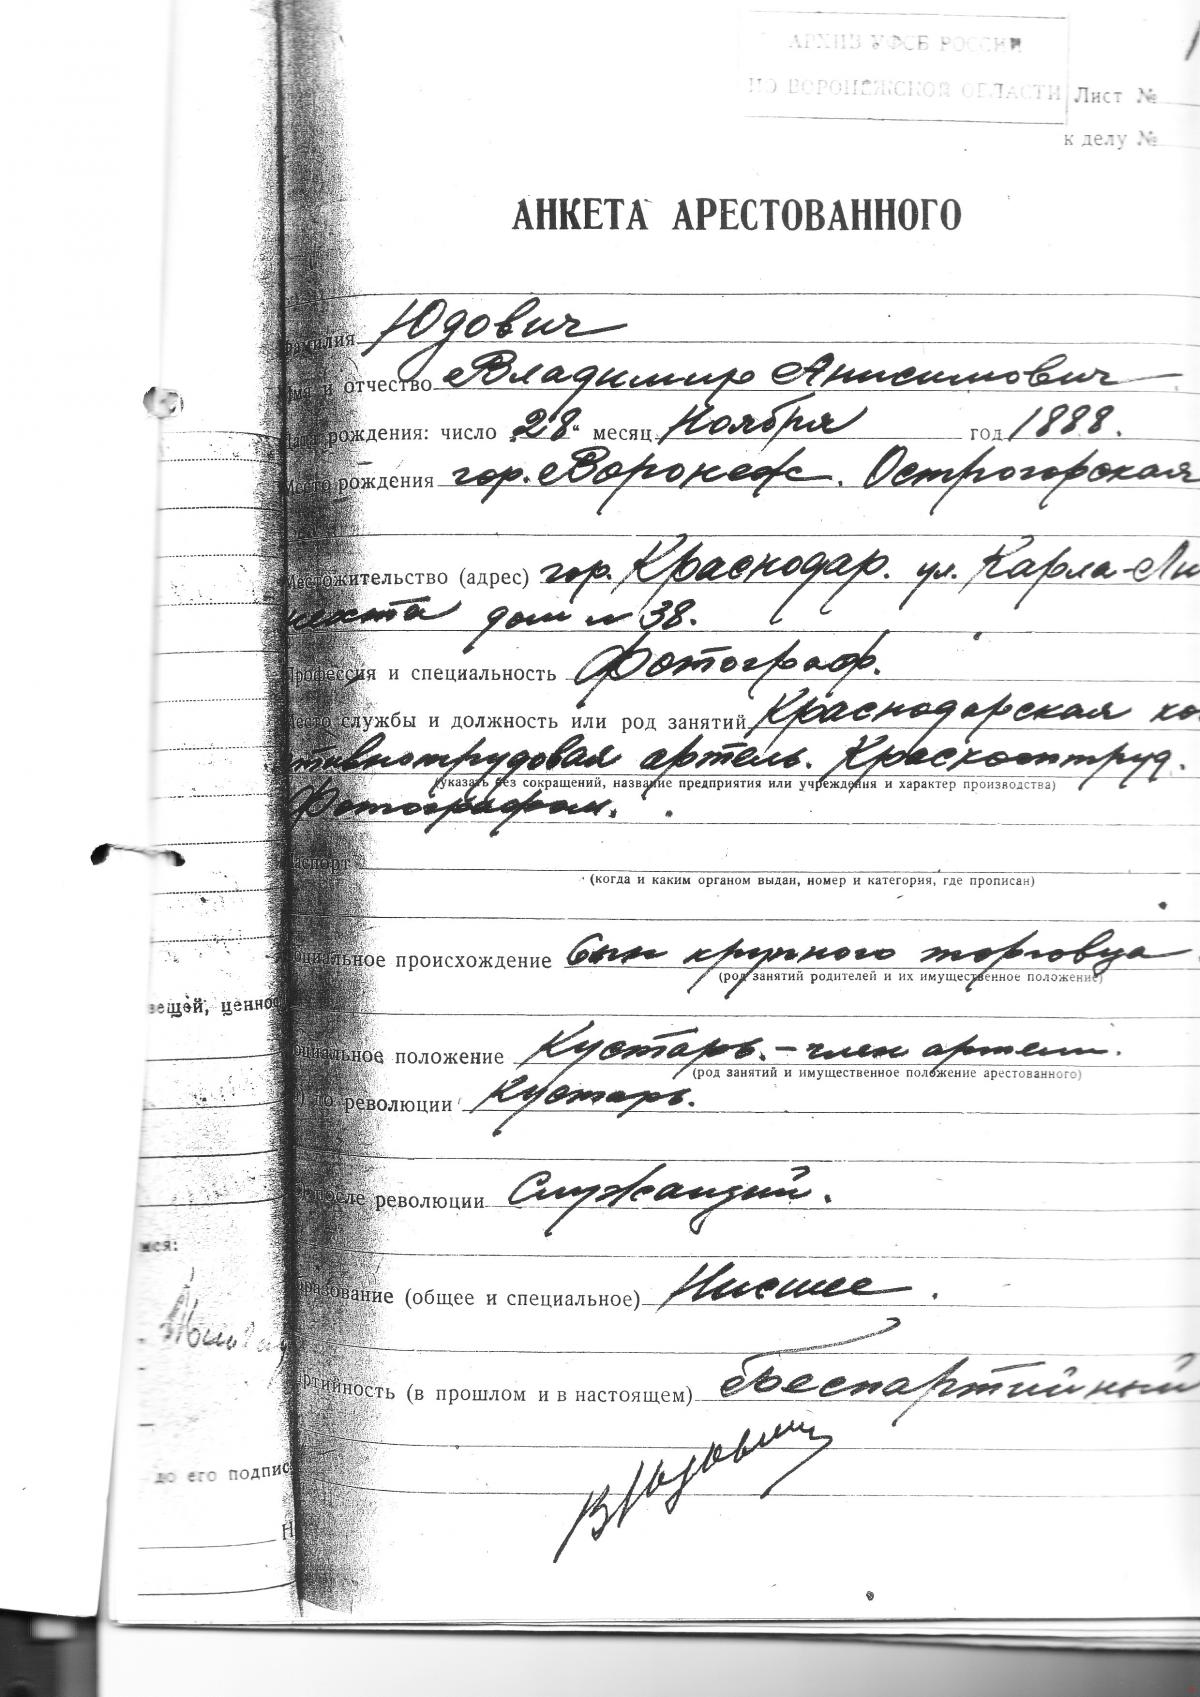 АРХИВ УФСБ РОССИИ
ПО ВОРОНЕЖСКОЙ ОБЛАСТИ
Лист №
к делу №
АНКЕТА АРЕСТОВАННОГО
Фамилия Юдович
Имя и отчество Владимир Анисимович
Дата рождения: число „28“ месяц Ноября год 1888.
Место рождения гор. Воронеж. Острогорская
Местожительство (адрес) гор. Краснодар. ул. Карла-Ли
кнехта дом № 38.
Профессия и специальность Фотограф.
Место службы и должность или род занятий Краснодарская ко
тивнотрудовая артель. Краскоптруд.
(указать без сокращений, название предприятия или учреждения и характер производства)
Фотографом.
Паспорт
(когда и каким органом выдан, номер и категория, где прописан)
социальное происхождение Сын крупного торговца
(род занятий родителей и их имущественное положение)
вещей, ценнос
социальное положение Кустарь. – член артели.
(род занятий и имущественное положение арестованного)
) до революции Кустарь.
после революции Служащий.
мся:
образование (общее и специальное) Нисшее.
артийность (в прошлом и в настоящем) Беспартийный
В Юдович
до его подпис
Н